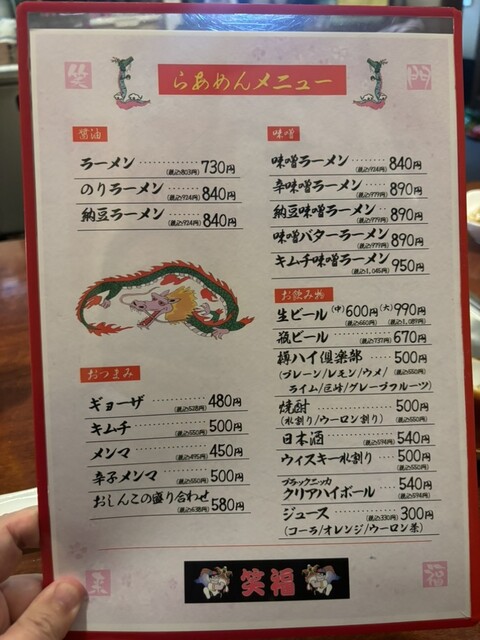 笑
門
らあめんメニュー
醤油
ラーメン 730円
(税込803円)
のりラーメン 840円
(税込924円)
納豆ラーメン 840円
(税込924円)
味噌
味噌ラーメン 840円
(税込924円)
辛味噌ラーメン 890円
(税込979円)
納豆味噌ラーメン 890円
(税込979円)
味噌バターラーメン 890円
(税込979円)
キムチ味噌ラーメン 950円
(税込1,045円)
おつまみ
ギョーザ 480円
(税込528円)
キムチ 500円
(税込550円)
メンマ 450円
(税込495円)
辛子メンマ 500円
(税込550円)
おしんこの盛り合わせ 580円
(税込638円)
お飲み物
生ビール (中)600円 (大)990円
(税込660円) (税込1,089円)
瓶ビール 670円
(税込737円)
樽ハイ倶楽部 500円
(プレーン/レモン/ウメ/ (税込550円)
ライム/巨峰/グレープフルーツ)
焼酎 500円
(水割り/ウーロン割り) (税込550円)
日本酒 540円
(税込594円)
ウィスキー水割り 500円
(税込550円)
ブラックニッカ
クリアハイボール 540円
(税込594円)
ジュース 300円
(税込330円)
(コーラ/オレンジ/ウーロン茶)
来
笑福
福